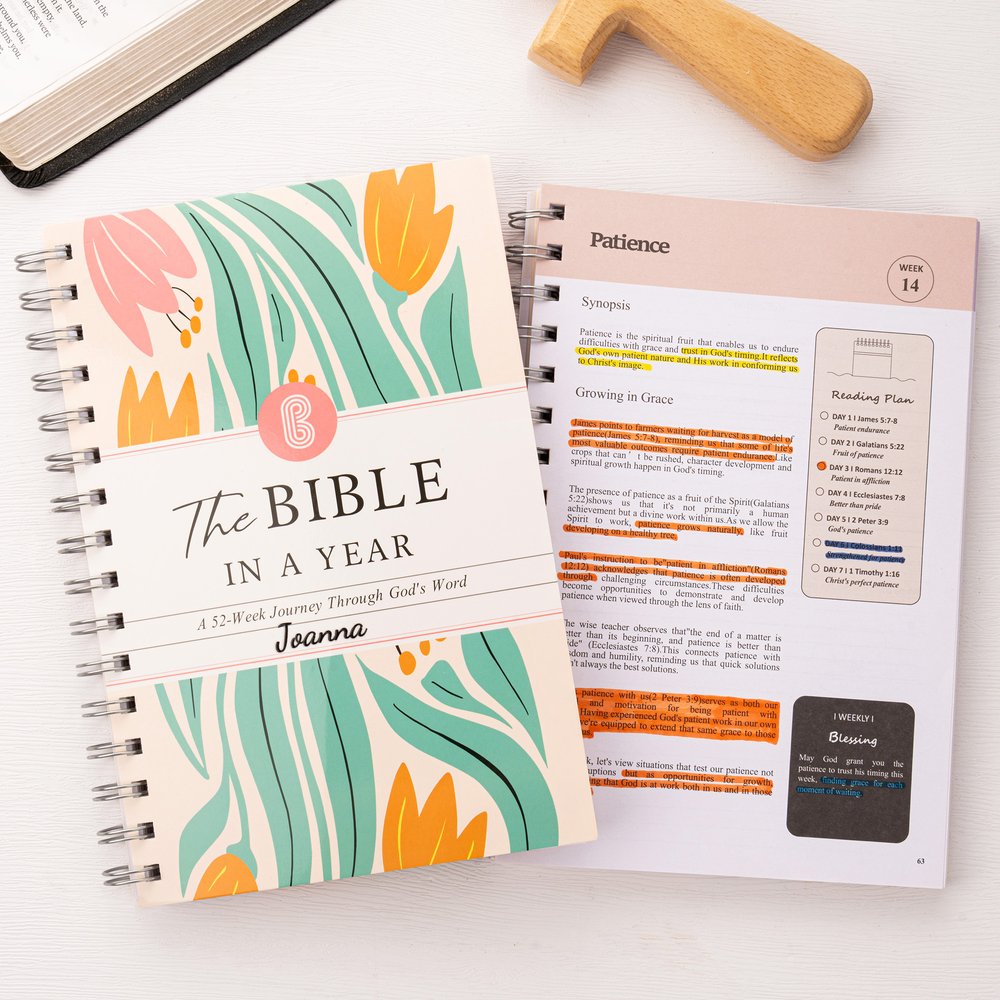 the land,
empty.
erless were
round you.
helms you.
The BIBLE
IN A YEAR
A 52-Week Journey Through God's Word
Joanna
Patience
WEEK
14
Synopsis
Patience is the spiritual fruit that enables us to endure
difficulties with grace and trust in God's timing.It reflects
God's own patient nature and His work in conforming us
to Christ's image.
Growing in Grace
James points to farmers waiting for harvest as a model of
patience(James 5:7-8), reminding us that some of life's
most valuable outcomes require patient endurance.Like
crops that can't be rushed, character development and
spiritual growth happen in God's timing.
The presence of patience as a fruit of the Spirit(Galatians
5:22)shows us that it's not primarily a human
achievement but a divine work within us.As we allow the
Spirit to work, patience grows naturally, like fruit
developing on a healthy tree.
Paul's instruction to be"patient in affliction"(Romans
12:12) acknowledges that patience is often developed
through challenging circumstances.These difficulties
become opportunities to demonstrate and develop
patience when viewed through the lens of faith.
he wise teacher observes that"the end of a matter is
etter than its beginning, and patience is better than
ide" (Ecclesiastes 7:8).This connects patience with
sdom and humility, reminding us that quick solutions
n't always the best solutions.
s patience with us(2 Peter 3:9)serves as both our
and motivation for being patient with
Having experienced God's patient work in our own
we're equipped to extend that same grace to those
us.
k, let's view situations that test our patience not
ruptions but as opportunities for growth,
ing that God is at work both in us and in those
Reading Plan
DAY 1 I James 5:7-8
Patient endurance
DAY 2 I Galatians 5:22
Fruit of patience
DAY 3 I Romans 12:12
Patient in affliction
DAY 4 I Ecclesiastes 7:8
Better than pride
DAY 5 I 2 Peter 3:9
God's patience
DAY 6 I Colossians 1:11
Strengthened for patience
DAY 7 I 1 Timothy 1:16
Christ's perfect patience
I WEEKLY I
Blessing
May God grant you the
patience to trust his timing this
week, finding grace for each
moment of waiting.
63